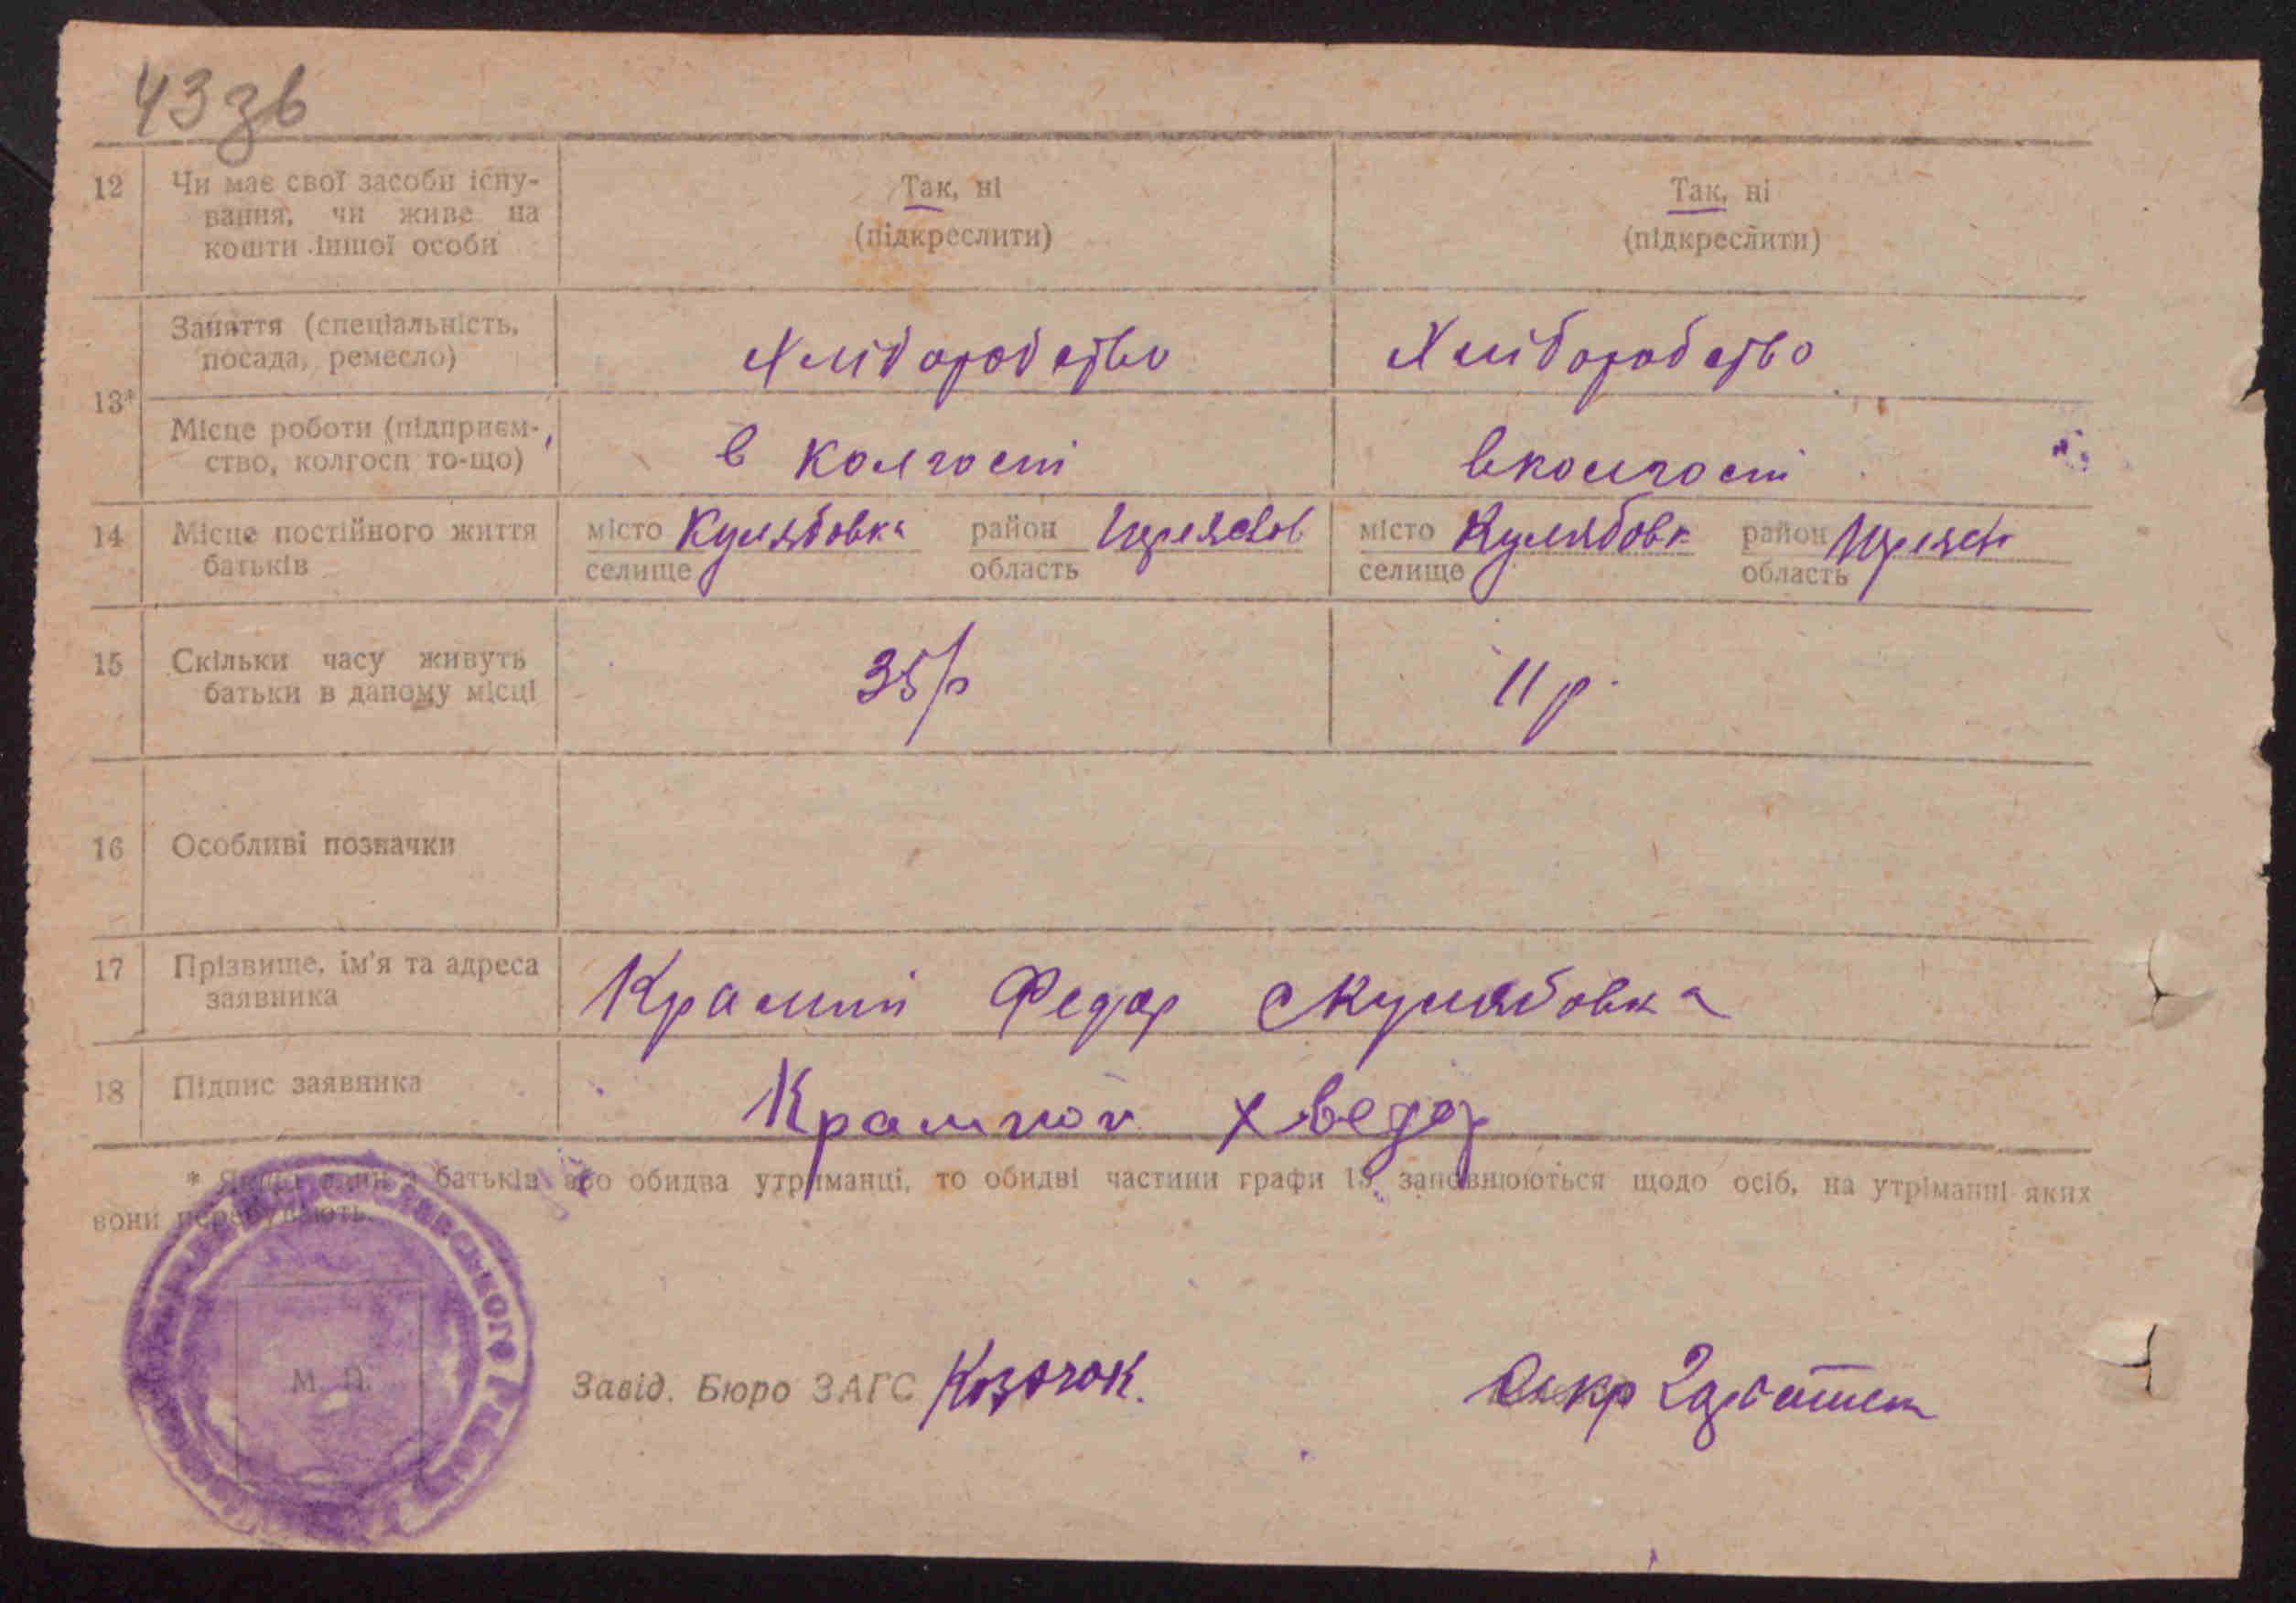 43зв
12 Чи має свої засоби існу- Так, ні Так, ні
вання, чи живе на
кошти іншої особи (підкреслити) (підкреслити)
Заняття (спеціальність,
посада, ремесло) Хліборобство Хліборобство
13*
Місце роботи (підприєм-
ство, колгосп то-що) в колгоспі в колгоспі
14 Місце постійного життя місто Кулябовка район місто Кулябовк район
батьків селище область селище область
15 Скільки часу живуть 35/р 11 р.
батьки в даному місці
16 Особливі позначки
17 Прізвище, ім'я та адреса
заявника Федор с Кулябовка
18 Підпис заявника Хведор
* Якщо один з батьків або обидва утриманці, то обидві частини графи 13 заповнюються щодо осіб, на утріманні яких
вони перебувають.
М. П.
Завід. Бюро ЗАГС Козачок.
Секр